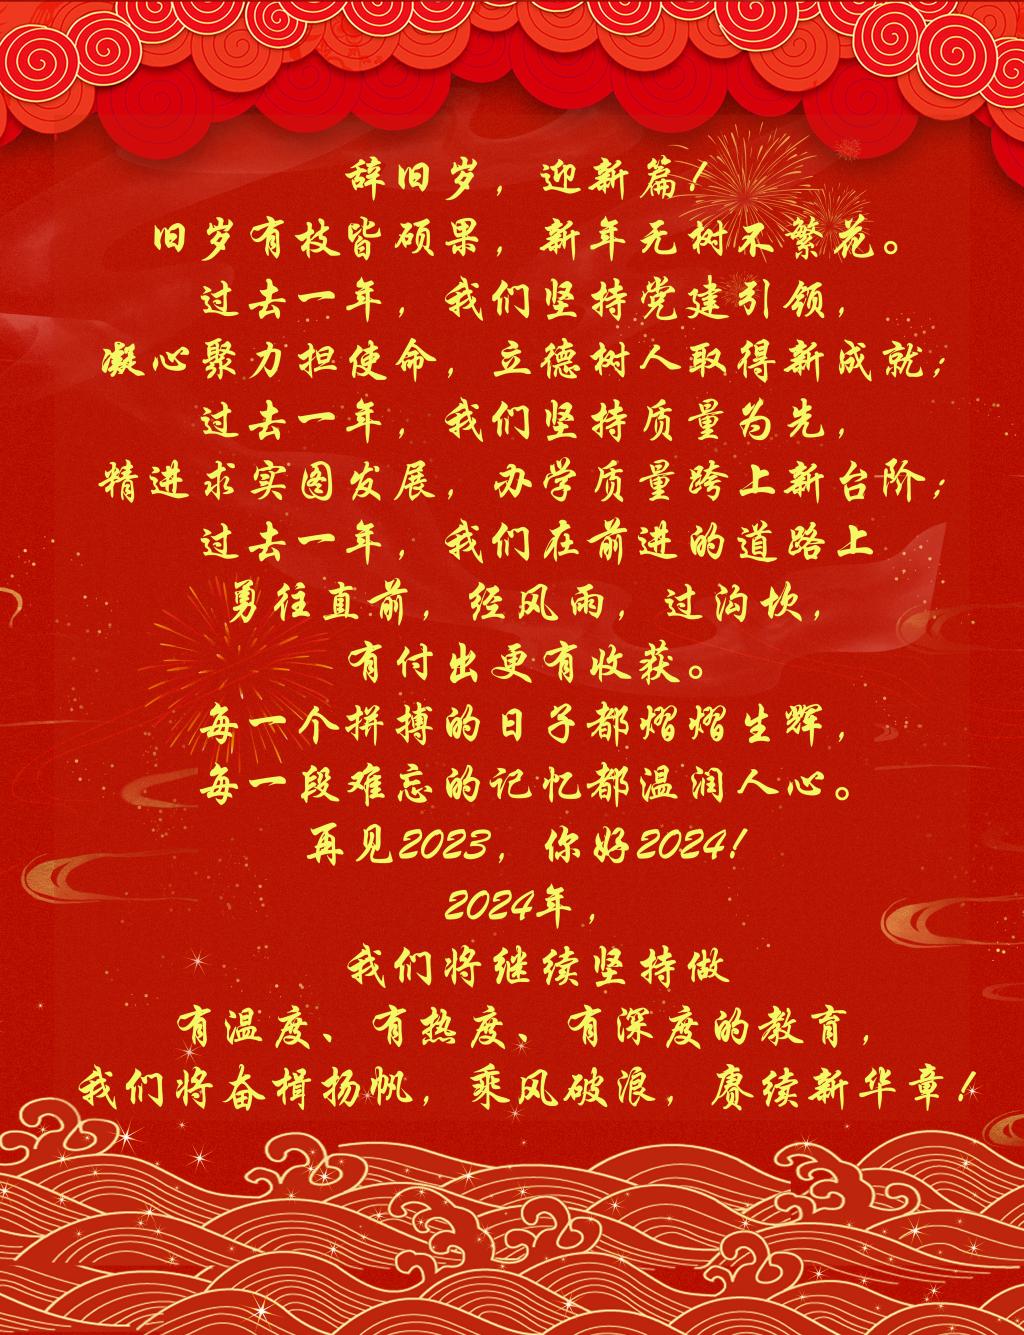 辞旧岁，迎新篇！
旧岁有枝皆硕果，新年无树不繁花。
过去一年，我们坚持党建引领，
凝心聚力担使命，立德树人取得新成就；
过去一年，我们坚持质量为先，
精进求实图发展，办学质量跨上新台阶；
过去一年，我们在前进的道路上
勇往直前，经风雨，过沟坎，
有付出更有收获。
每一个拼搏的日子都熠熠生辉，
每一段难忘的记忆都温润人心。
再见2023，你好2024！
2024年，
我们将继续坚持做
有温度、有热度、有深度的教育，
我们将奋楫扬帆，乘风破浪，赓续新华章！